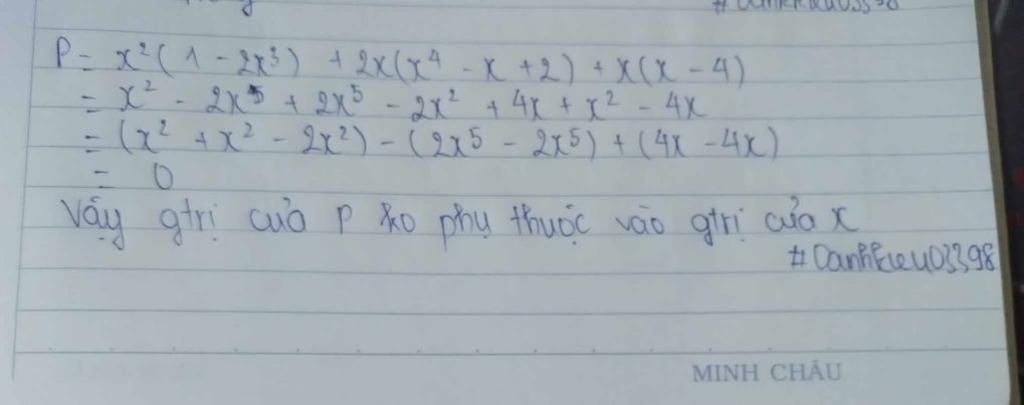 #Danhkieu03398
P = x²(1 - 2x³) + 2x(x⁴ - x + 2) + x(x - 4)
= x² - 2x⁵ + 2x⁵ - 2x² + 4x + x² - 4x
= (x² + x² - 2x²) - (2x⁵ - 2x⁵) + (4x - 4x)
= 0
Vậy gtrị của P ko phụ thuộc vào gtrị của x
#Danhkieu03398
MINH CHÂU